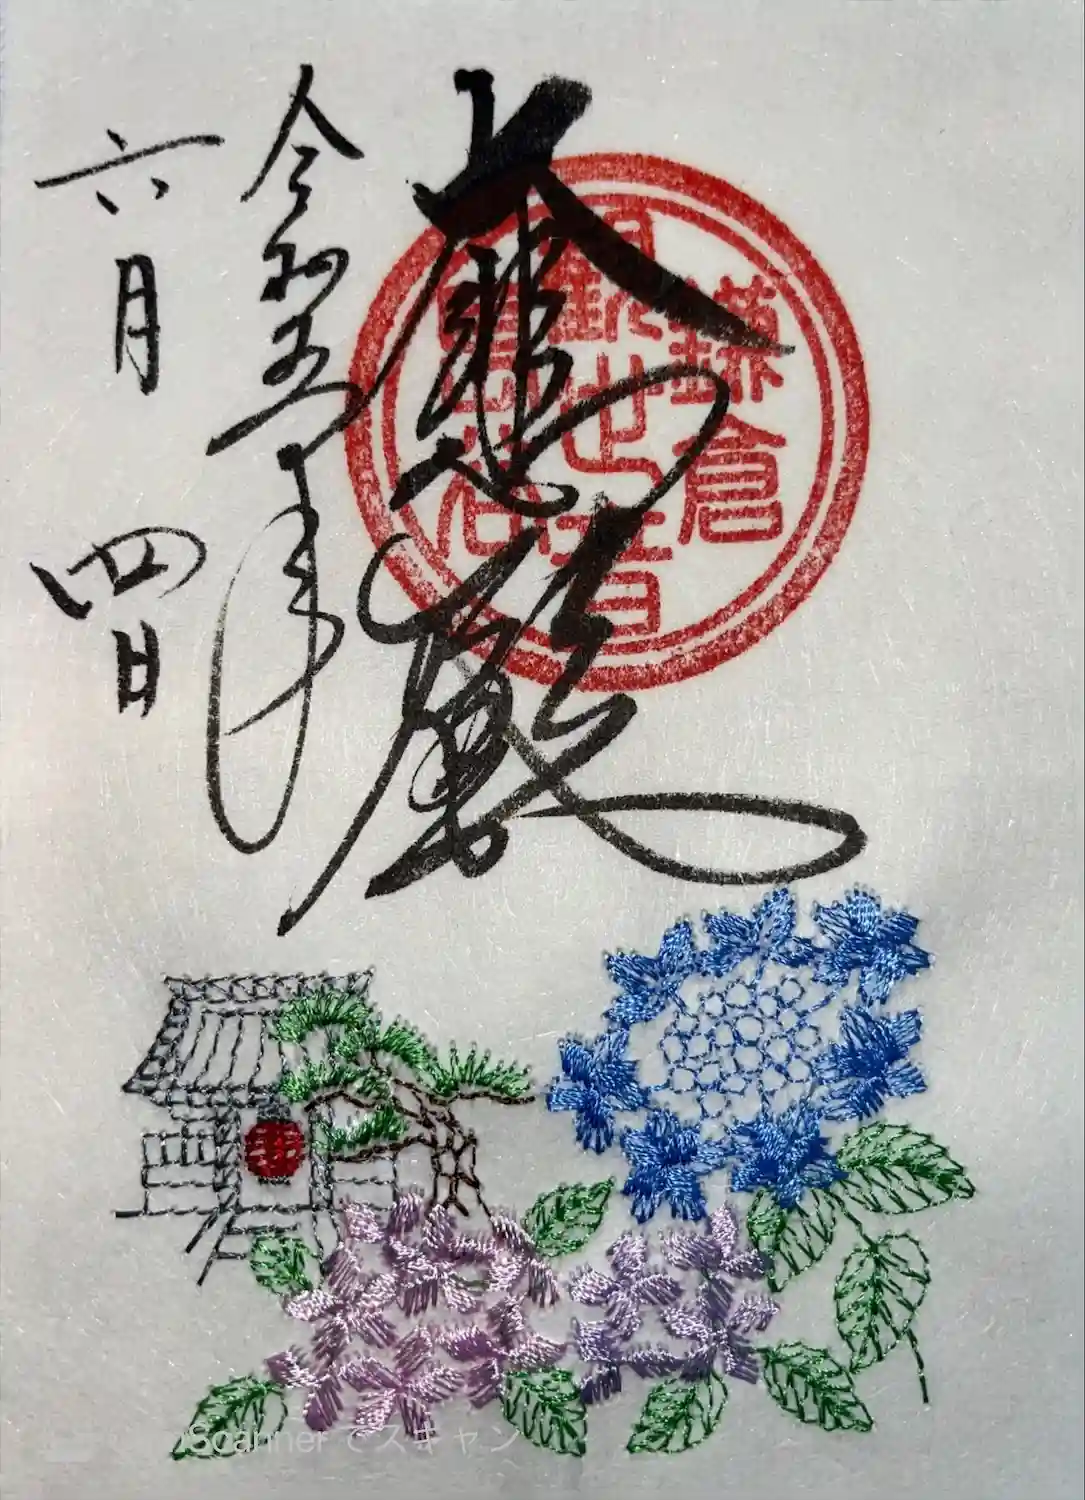 大悲殿
令和五年
六月四日
鎌倉
観世音
Scanner でスキャン